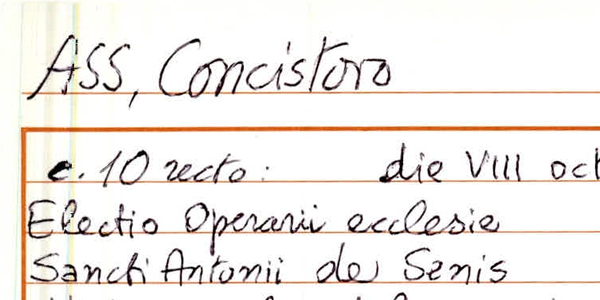 ASS, Concistoro
c. 10 recto: die VIII oct
Electio Operarii ecclesie
Sancti Antonii de Senis